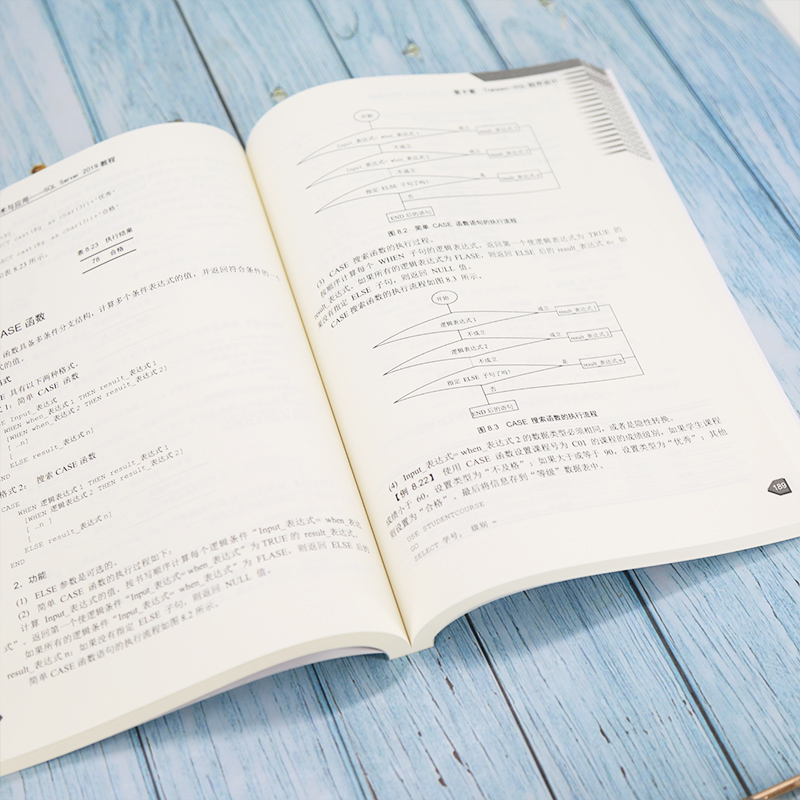 术与应用——SQL Server 2019 教程
表 8.23 执行结果
78 合格
表 8.23 所示。
ASE 函数
函数具备多条件分支结构，计算多个条件表达式的值，并返回符合条件的一
式的值。
格式
具有以下两种格式。
1：简单 CASE 函数
Input_表达式
WHEN when_表达式 1 THEN result_表达式 1
[WHEN when_表达式 2 THEN result_表达式 2]
[…n]
ELSE result_表达式 n]
END
格式 2：搜索 CASE 函数
CASE
WHEN 逻辑表达式 1 THEN result_表达式 1
[WHEN 逻辑表达式 2 THEN result_表达式 2]
[…n]
ELSE result_表达式 n]
END
2．功能
（1）ELSE 参数是可选的。
（2）简单 CASE 函数的执行过程如下：
计算 Input_表达式的值，按书写顺序计算每个逻辑条件“Input_表达式= when_表达
式”。返回第一个使逻辑条件“Input_表达式= when_表达式”为 TRUE 的 result_表达式。
如果所有的逻辑条件“Input_表达式= when_表达式”为 FLASE，则返回 ELSE 后的
result_表达式 n；如果没有指定 ELSE 子句，则返回 NULL 值。
简单 CASE 函数语句的执行流程如图 8.2 所示。
第 8 章 Transact-SQL 程序设计
开始
Input_表达式= when_表达式 1
成立
不成立
成立
不成立
指定 ELSE 子句了吗？
是
否
END 后的语句
图 8.2 简单 CASE 函数语句的执行流程
（3）CASE 搜索函数的执行过程。
按顺序计算每个 WHEN 子句的逻辑表达式，返回第一个使逻辑表达式为 TRUE 的
result_表达式，如果所有的逻辑表达式为 FLASE，则返回 ELSE 后的 result_表达式 n；如
果没有指定 ELSE 子句，则返回 NULL 值。
CASE 搜索函数的执行流程如图 8.3 所示。
开始
逻辑表达式 1
成立
result_表达式 1
不成立
逻辑表达式 2
成立
result_表达式 2
不成立
指定 ELSE 子句了吗？
是
result_表达式 n
否
END 后的语句
图 8.3 CASE 搜索函数的执行流程
（4）Input_表达式= when_表达式 2 的数据类型必须相同，或者是隐性转换。
【例 8.22】使用 CASE 函数设置课程号为 C01 的课程的成绩级别，如果学生课程
成绩小于 60，设置类型为“不及格”；如果大于或等于 90，设置类型为“优秀”；其他
则设置为“合格”，最后将信息存到“等级”数据表中。
USE STUDENTCOURSE
GO
SELECT 学号, 级别 =
189